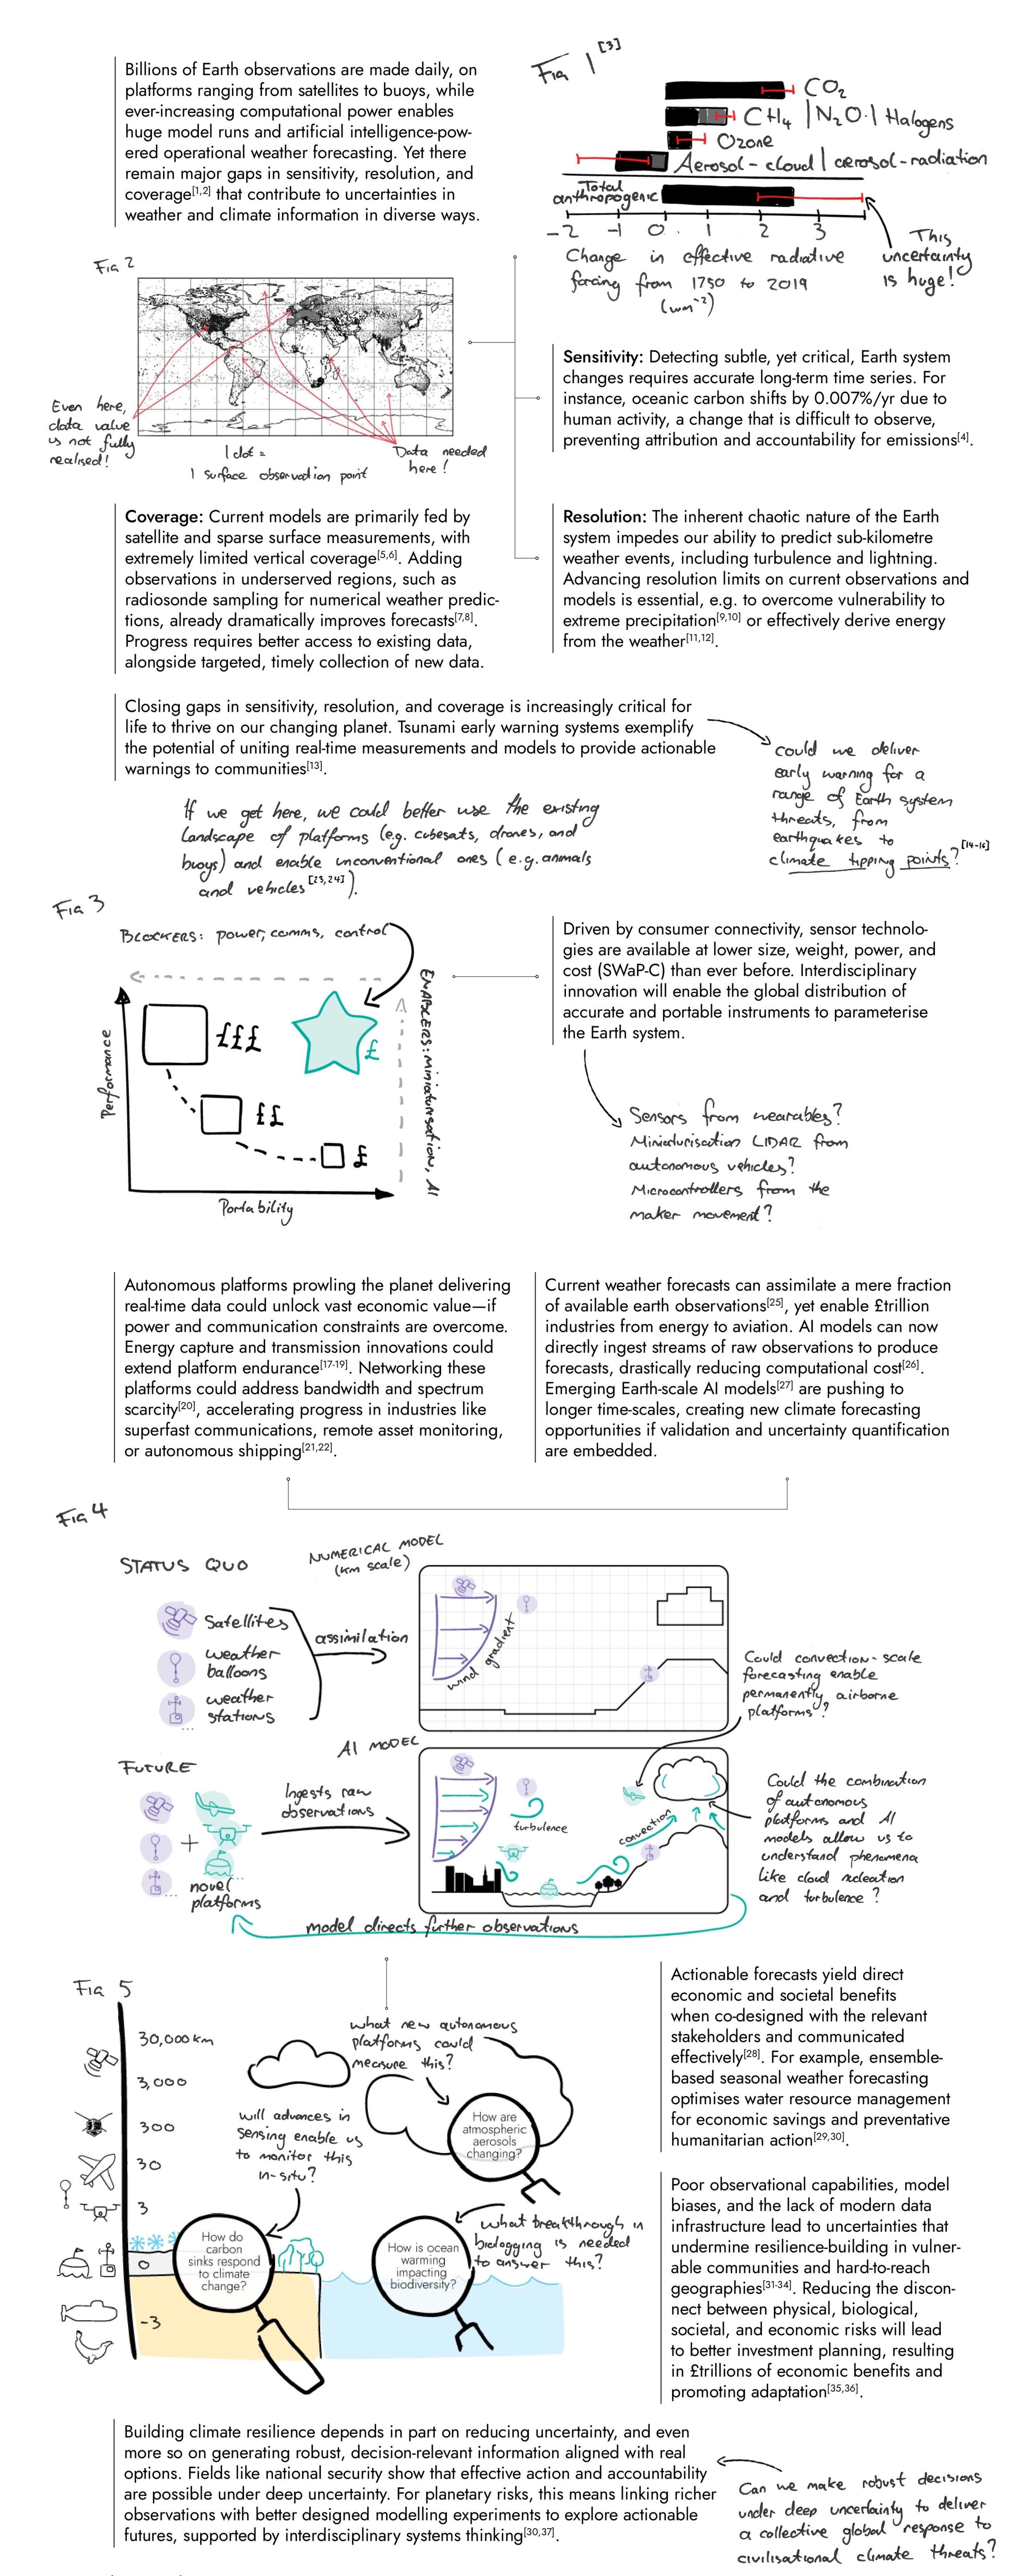 Billions of Earth observations are made daily, on
platforms ranging from satellites to buoys, while
ever-increasing computational power enables
huge model runs and artificial intelligence-pow-
ered operational weather forecasting. Yet there
remain major gaps in sensitivity, resolution, and
coverage[1,2] that contribute to uncertainties in
weather and climate information in diverse ways.
Fig 1 [3]
CO2
CH4 | N2O | Halogens
Ozone
Aerosol-cloud | aerosol-radiation
Total
anthropogenic
-2 -1 0 1 2 3
Change in effective radiative
forcing from 1750 to 2019
(wm-2)
This
uncertainty
is huge!
Fig 2
Even here,
data value
is not fully
realised!
1 dot =
1 surface observation point
Data needed
here!
Sensitivity: Detecting subtle, yet critical, Earth system
changes requires accurate long-term time series. For
instance, oceanic carbon shifts by 0.007%/yr due to
human activity, a change that is difficult to observe,
preventing attribution and accountability for emissions[4].
Coverage: Current models are primarily fed by
satellite and sparse surface measurements, with
extremely limited vertical coverage[5,6]. Adding
observations in underserved regions, such as
radiosonde sampling for numerical weather predic-
tions, already dramatically improves forecasts[7,8].
Progress requires better access to existing data,
alongside targeted, timely collection of new data.
Resolution: The inherent chaotic nature of the Earth
system impedes our ability to predict sub-kilometre
weather events, including turbulence and lightning.
Advancing resolution limits on current observations and
models is essential, e.g. to overcome vulnerability to
extreme precipitation[9,10] or effectively derive energy
from the weather[11,12].
Closing gaps in sensitivity, resolution, and coverage is increasingly critical for
life to thrive on our changing planet. Tsunami early warning systems exemplify
the potential of uniting real-time measurements and models to provide actionable
warnings to communities[13].
could we deliver
early warning for a
range of Earth system
threats, from
earthquakes to
climate tipping points?[14-16]
If we get here, we could better use the existing
landscape of platforms (e.g. cubesats, drones, and
buoys) and enable unconventional ones (e.g. animals
and vehicles[23,24]).
Fig 3
BLOCKERS: power, comms, control
ENABLERS: miniaturisation, AI
Performance
£££
££
£
£
Portability
Driven by consumer connectivity, sensor technolo-
gies are available at lower size, weight, power, and
cost (SWaP-C) than ever before. Interdisciplinary
innovation will enable the global distribution of
accurate and portable instruments to parameterise
the Earth system.
Sensors from wearables?
Miniaturisation LIDAR from
autonomous vehicles?
Microcontrollers from the
maker movement?
Autonomous platforms prowling the planet delivering
real-time data could unlock vast economic value—if
power and communication constraints are overcome.
Energy capture and transmission innovations could
extend platform endurance[17-19]. Networking these
platforms could address bandwidth and spectrum
scarcity[20], accelerating progress in industries like
superfast communications, remote asset monitoring,
or autonomous shipping[21,22].
Current weather forecasts can assimilate a mere fraction
of available earth observations[25], yet enable £trillion
industries from energy to aviation. AI models can now
directly ingest streams of raw observations to produce
forecasts, drastically reducing computational cost[26].
Emerging Earth-scale AI models[27] are pushing to
longer time-scales, creating new climate forecasting
opportunities if validation and uncertainty quantification
are embedded.
Fig 4
STATUS QUO
NUMERICAL MODEL
(km scale)
Satellites
weather
balloons
weather
stations
...
assimilation
wind gradient
Could convection-scale
forecasting enable
permanently airborne
platforms?
FUTURE
AI MODEL
Ingests raw
observations
+
...
novel
platforms
turbulence
convection
model directs further observations
Could the combination
of autonomous
platforms and AI
models allow us to
understand phenomena
like cloud nucleation
and turbulence?
Fig 5
30,000 km
3,000
300
30
3
0
-3
what new autonomous
platforms could
measure this?
How are
atmospheric
aerosols
changing?
will advances in
sensing enable us
to monitor this
in-situ?
How do
carbon
sinks respond
to climate
change?
what breakthrough in
biologging is needed
to answer this?
How is ocean
warming
impacting
biodiversity?
Actionable forecasts yield direct
economic and societal benefits
when co-designed with the relevant
stakeholders and communicated
effectively[28]. For example, ensemble-
based seasonal weather forecasting
optimises water resource management
for economic savings and preventative
humanitarian action[29,30].
Poor observational capabilities, model
biases, and the lack of modern data
infrastructure lead to uncertainties that
undermine resilience-building in vulner-
able communities and hard-to-reach
geographies[31-34]. Reducing the discon-
nect between physical, biological,
societal, and economic risks will lead
to better investment planning, resulting
in £trillions of economic benefits and
promoting adaptation[35,36].
Building climate resilience depends in part on reducing uncertainty, and even
more so on generating robust, decision-relevant information aligned with real
options. Fields like national security show that effective action and accountability
are possible under deep uncertainty. For planetary risks, this means linking richer
observations with better designed modelling experiments to explore actionable
futures, supported by interdisciplinary systems thinking[30,37].
Can we make robust decisions
under deep uncertainty to deliver
a collective global response to
civilisational climate threats?